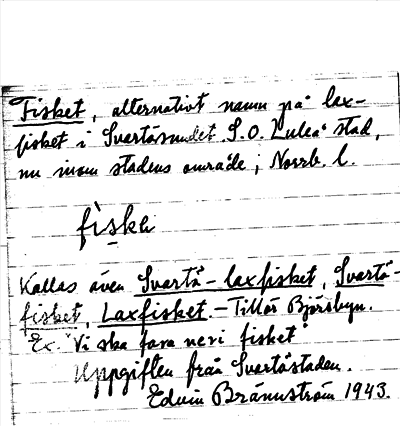 Fisket, alternativt namn på lax-
fisket i Svartösundet S.O. Luleå stad,
nu inom stadens område, Norrb. l.
fìske
Kallas även Svartö-laxfisket, Svartö-
fisket, Laxfisket. - Tillör Björsbyn.
Ex. "Vi ska fara neri fisket"
Uppgiften från Svartöstaden.
Edvin Brännström 1943.